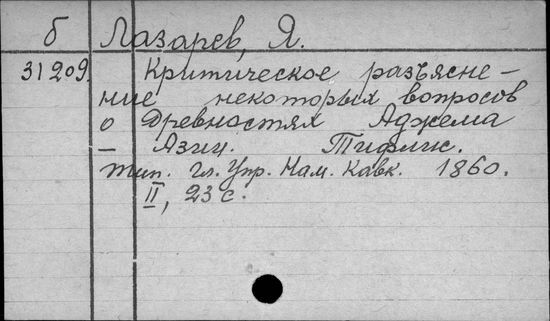 б Лазарев, Я.
31209. Критическое разъясне-
ние некоторых вопросов
о Древностях Аджема
— Азии. Тифлис.
тип. Гл. Упр. Нам. Кавк. 1860.
II, 23 с.